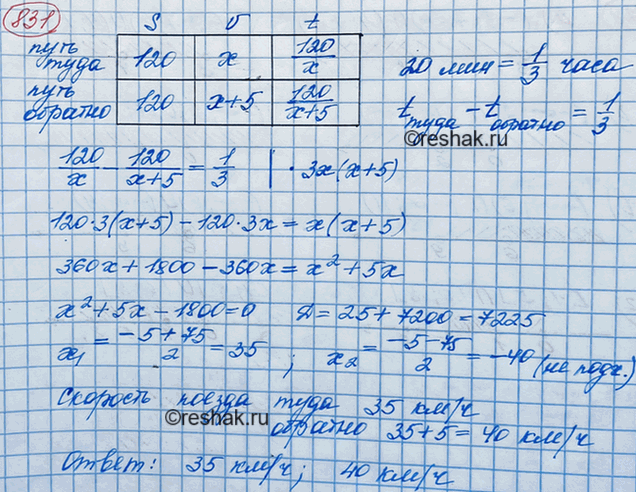 831
S v t
путь туда 120 x 120/x
путь обратно 120 x+5 120/(x+5)
20 мин = 1/3 часа
t туда - t обратно = 1/3
©reshak.ru
120/x - 120/(x+5) = 1/3 | · 3x(x+5)
120·3(x+5) - 120·3x = x(x+5)
360x + 1800 - 360x = x² + 5x
x² + 5x - 1800 = 0 Д = 25 + 7200 = 7225
x₁ = (-5+75)/2 = 35 ; x₂ = (-5-75)/2 = -40 (не подх.)
Скорость поезда туда 35 км/ч
©reshak.ru
обратно 35+5 = 40 км/ч
Ответ: 35 км/ч; 40 км/ч